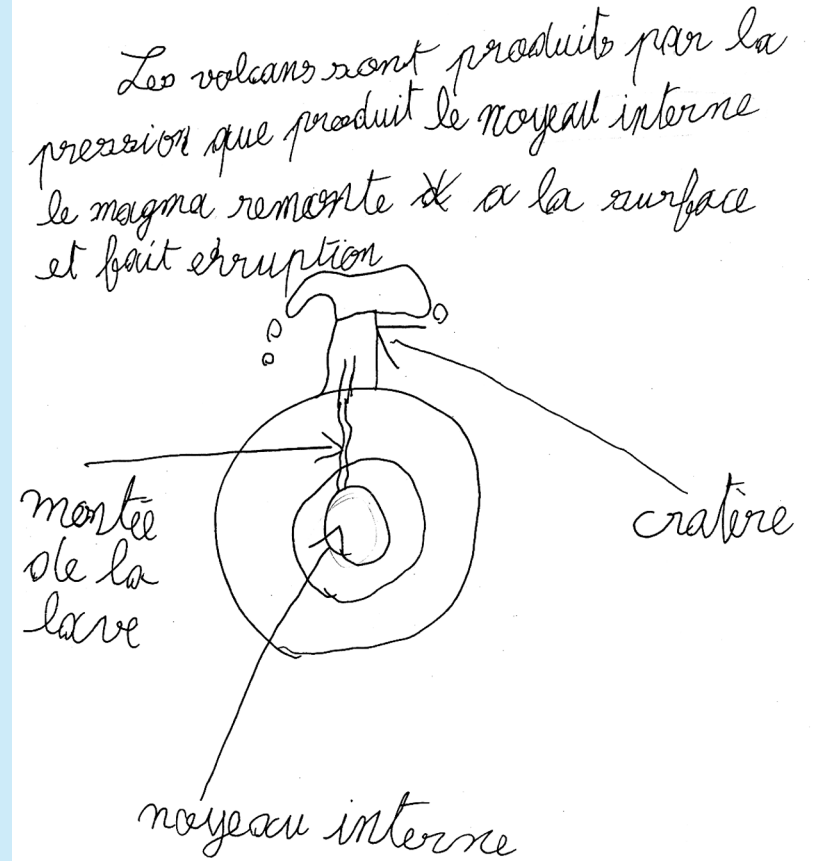 Les volcans sont produits par la
pression que produit le noyeau interne
le magma remonte a la surface
et fait erruption
montée
de la
lave
cratère
noyeau interne